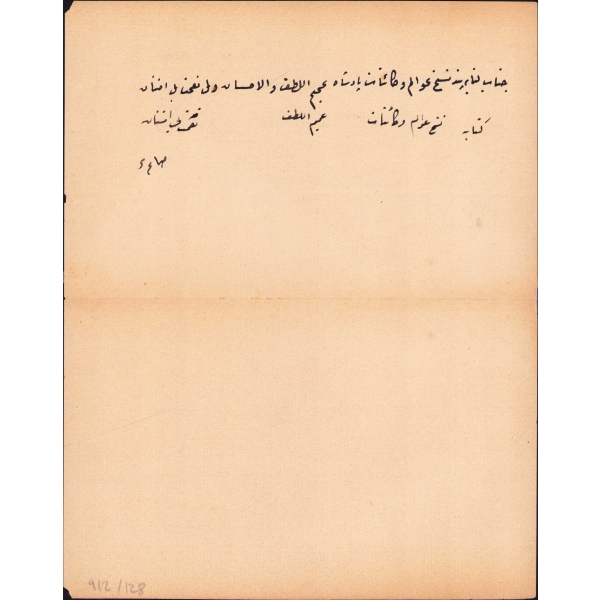 جناب كتابه‌بند نسخ عوالم و كائنات پادشاه عميم اللطف والاحسان ولى نعمت بى امتنان
كتابه نسخ عوالم و كائنات عميم اللطف نعمت بى امتنان
912/128